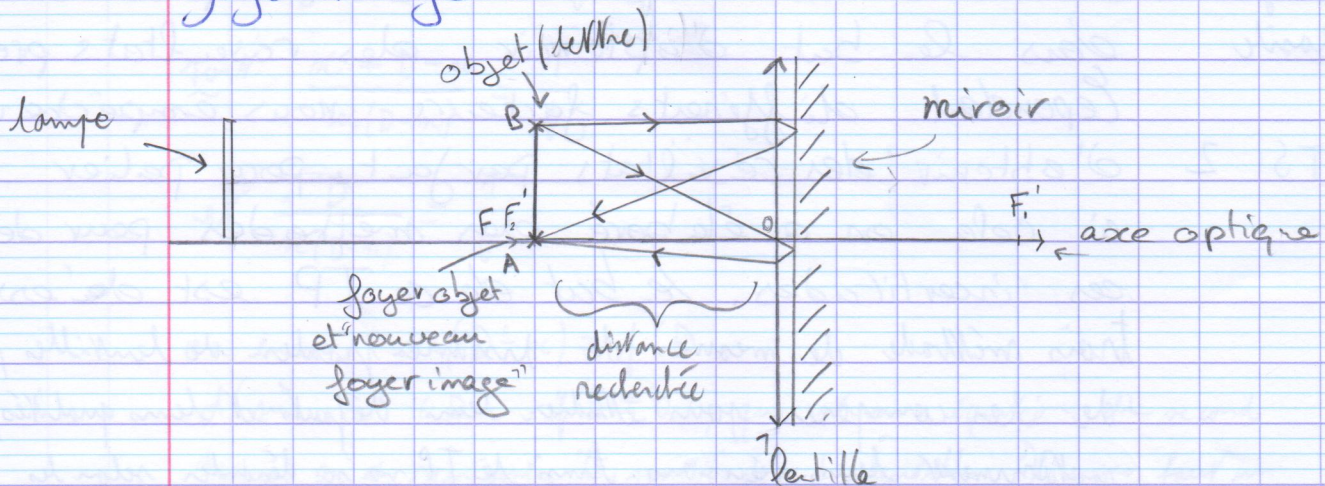 objet (lettre)
lampe
miroir
B
F F'₂
A
O
F'₁
axe optique
foyer objet
et "nouveau
foyer image"
distance
recherchée
lentille